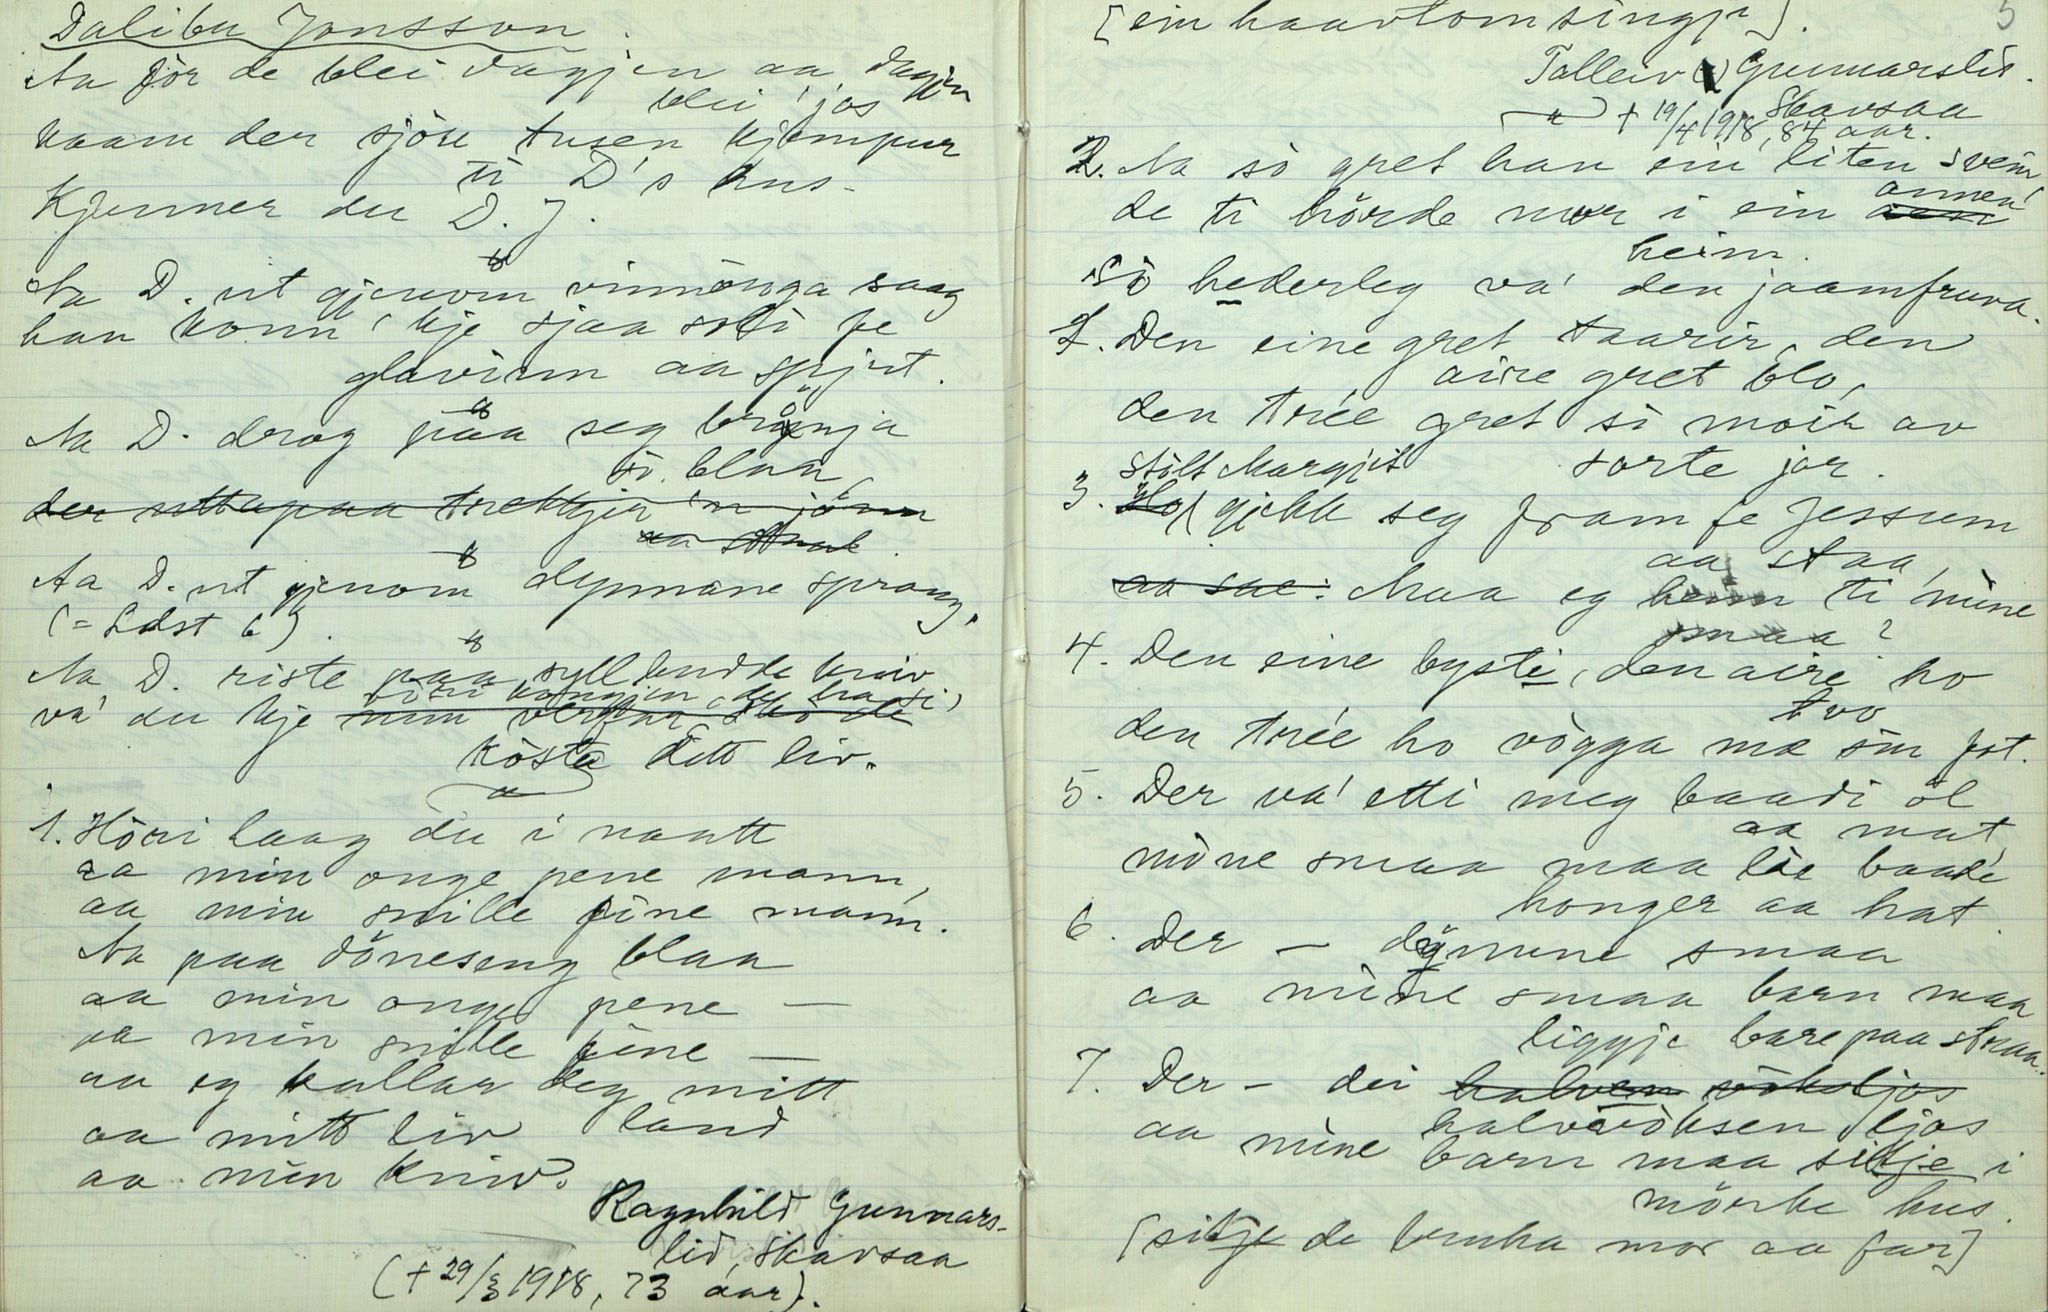 Dalibu Jonsson.
Aaför de blei dagjen aa dagjen
blei ljos
kaam der sjöre tusen kjempur
ti D's hus.
Kjenner du D. J.
Aa D. ut gjenom vinnöuga saag
han konn' kje sjaa soli fe
glavinn aa spjut.
Aa D. drog paa seg brynja
si blaa,
der sette paa trettkjir 'n jönn
aa staal.
Aa D. ut gjenom dynnane sprang.
(= Ldst 6).
Aa D. riste paa syllbudde kniv
va' du kje konngjen, du ha si'
kösta ditt liv.
1. Höri laag du i naatt
aa min onge pene mann,
aa min snille fine mann.
Aa paa döneseng blaa
aa min onge pene —
aa min snille fine —
aa eg kallar deg mitt
land
aa mitt liv
aa min kniv.
Ragnhild Gunnars-
lid, Skavsaa
(+ 29/3 1918, 73 aar).
5
[ein haartom singje].
Talleiv Gunnarslid.
Skavsaa
+ 19/4 1918, 84 aar.
2. Aa so gret han ein liten svein
de ti hörde mor i ein annen
heim.
So hederleg va' den jaamfruva.
2. Den eine gret taarir, den
aire gret blo,
den trée gret si moir av
sorte jor.
3. Stolt Margjit gjekk seg fram fe Jessum
aa staa,
aa sae: Maa eg heim ti mine
smaa?
4. Den eine bysti, den aire ho
tvo
den trée ho vogga mæ sin fot.
5. Der va' etti meg baadi öl
aa mat,
mine smaa maa lie baade
honger aa hat.
6. Der — dynune smaa
aa mine smaa barn maa
liggje bare paa straa.
7. Der — dei halvvöksen ljos
aa mine barn maa sitje i
mörke hus.
[sitje de bruka mor aa far]